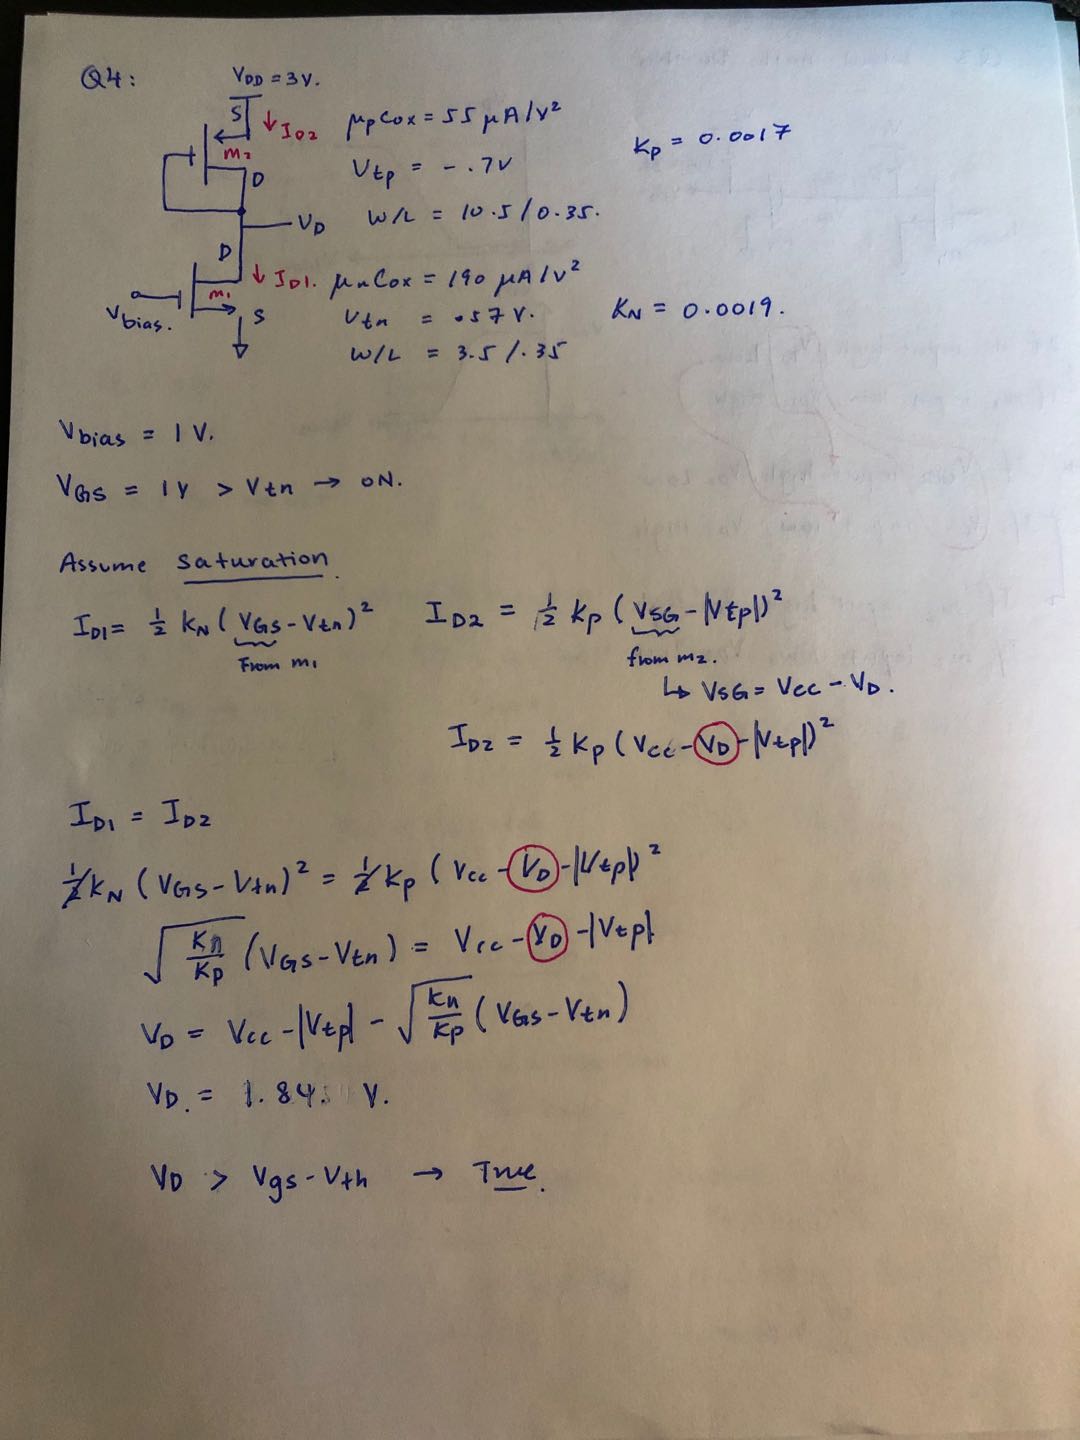 Q4:
VDD = 3V.
S
↓ ID2
M2
D
μpCox = 55 μA/V²
Vtp = -.7V
W/L = 10.5/0.35.
Kp = 0.0017
VD
D
↓ ID1.
M1
S
Vbias.
μnCox = 190 μA/V²
Vtn = .57V.
W/L = 3.5/.35
KN = 0.0019.
Vbias = 1V.
VGS = 1V > Vtn → ON.
Assume saturation.
ID1 = ½ KN (VGS - Vtn)²
From M1
ID2 = ½ Kp (VSG - |Vtp|)²
from M2.
↳ VSG = VCC - VD.
ID2 = ½ Kp (VCC - VD - |Vtp|)²
ID1 = ID2
½ KN (VGS - Vtn)² = ½ Kp (VCC - VD - |Vtp|)²
√(Kn/Kp) (VGS - Vtn) = VCC - VD - |Vtp|
VD = VCC - |Vtp| - √(Kn/Kp) (VGS - Vtn)
VD. = 1.84. V.
VD > Vgs - Vth → True.